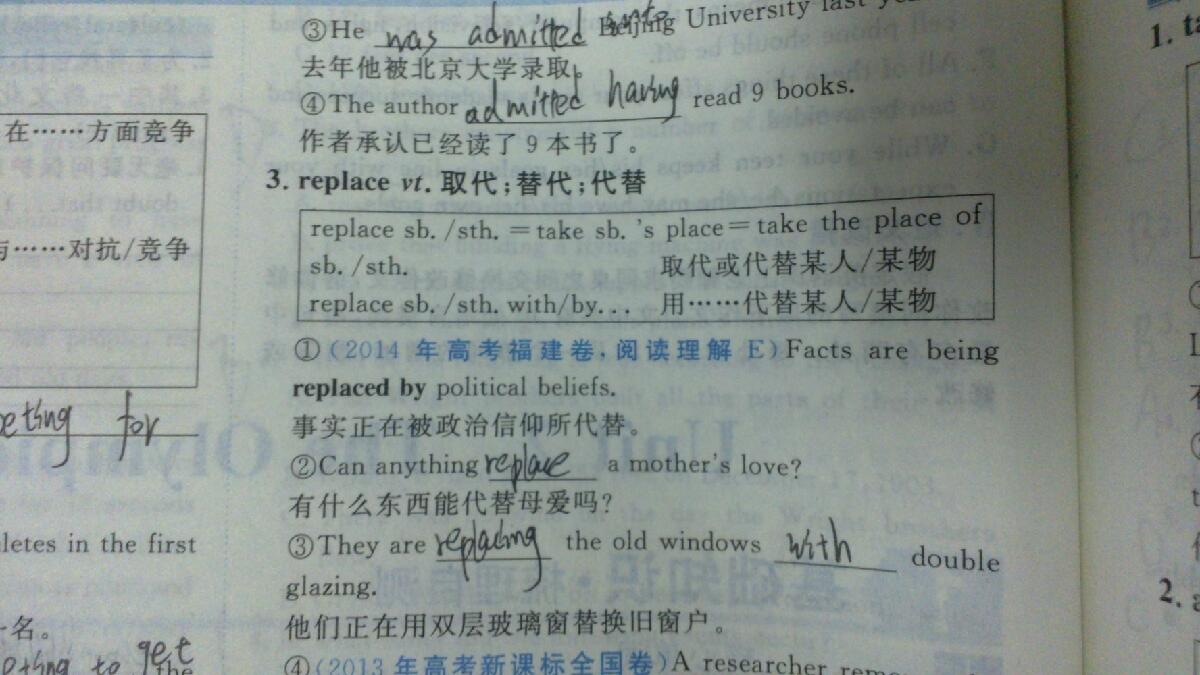 ③He was admitted into Beijing University last
去年他被北京大学录取。
④The author admitted having read 9 books.
作者承认已经读了9本书了。
3. replace vt. 取代;替代;代替
replace sb. /sth. =take sb. 's place=take the place of
sb. /sth. 取代或代替某人/某物
replace sb. /sth. with/by... 用……代替某人/某物
①(2014年高考福建卷,阅读理解E)Facts are being
replaced by political beliefs.
事实正在被政治信仰所代替。
②Can anything replace a mother's love?
有什么东西能代替母爱吗?
③They are replacing the old windows with double
glazing.
他们正在用双层玻璃窗替换旧窗户。
④(2013年高考新课标全国卷)A researcher
在……方面竞争
……对抗/竞争
eting for
letes in the first
名。
eting to get the
1. ta
2. a